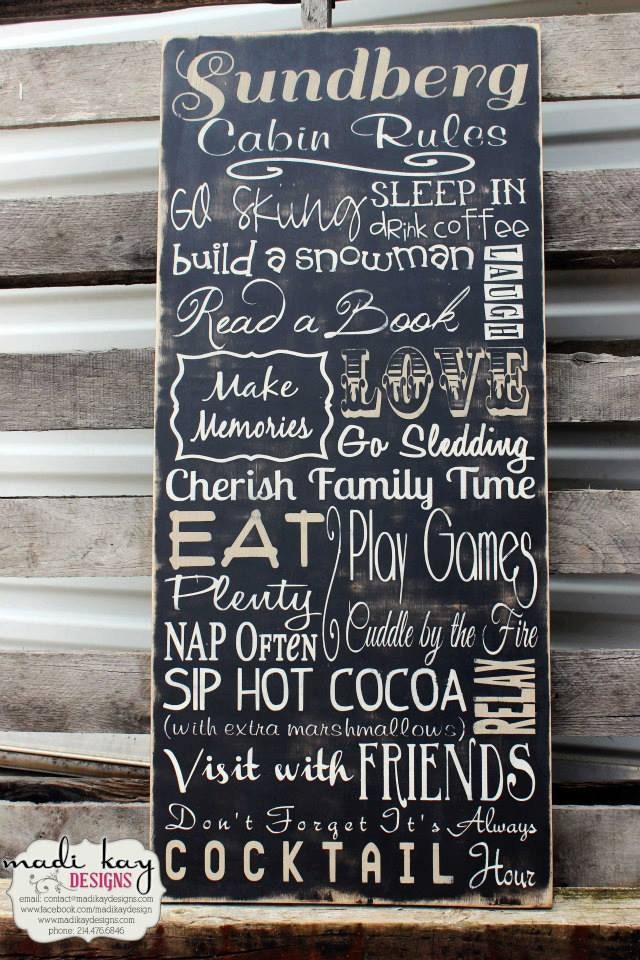 Sundberg
Cabin Rules
Go Skiing
SLEEP IN
drink coffee
build a snowman
LAUGH
Read a Book
Make
Memories
LOVE
Go Sledding
Cherish Family Time
EAT
Plenty
Play Games
NAP Often
Cuddle by the Fire
SIP HOT COCOA
(with extra marshmallows)
RELAX
Visit with FRIENDS
Don't Forget It's Always
COCKTAIL Hour
madi kay
DESIGNS
email: contact@madikaydesigns.com
www.facebook.com/madikaydesign
www.madikaydesigns.com
phone: 214.476.6846